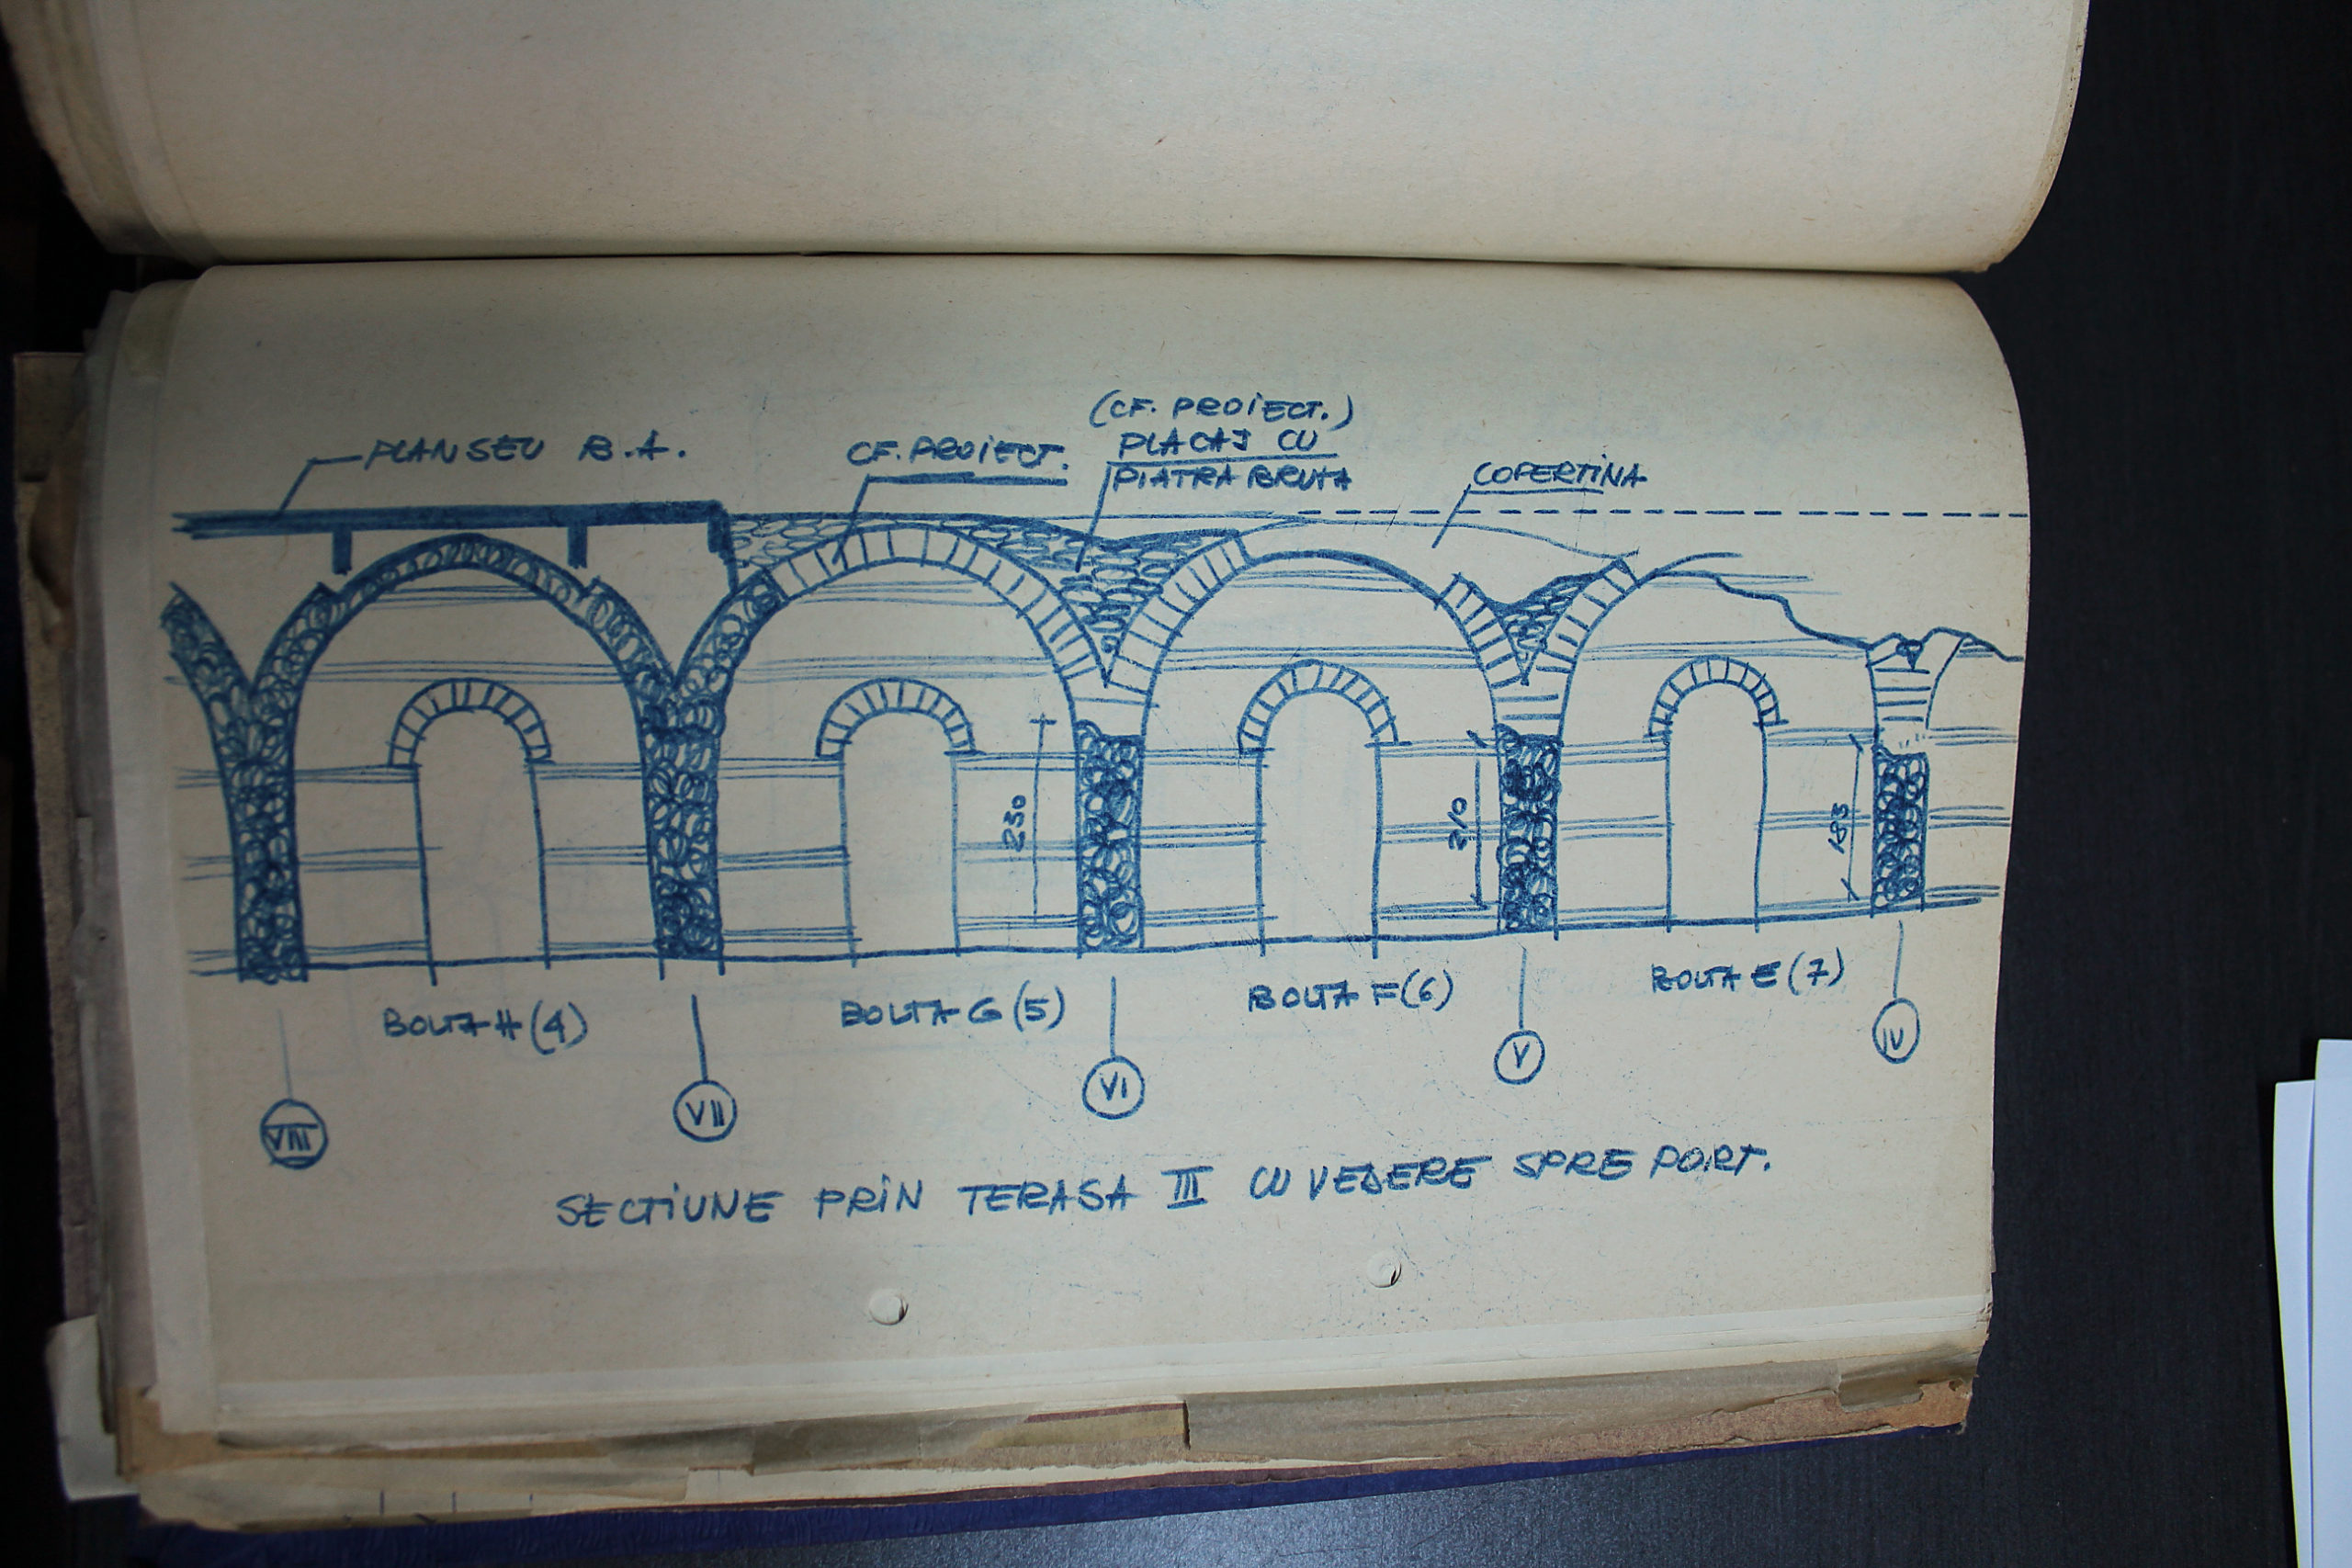 (CF. PROIECT.)
PLANSEU B.A.
CF. PROIECT.
PLACAJ CU
PIATRA BRUTA
COPERTINA
230
210
185
BOLTA H (4)
BOLTA G (5)
BOLTA F (6)
BOLTA E (7)
VIII
VII
VI
V
IV
SECTIUNE PRIN TERASA III CU VEDERE SPRE PORT.